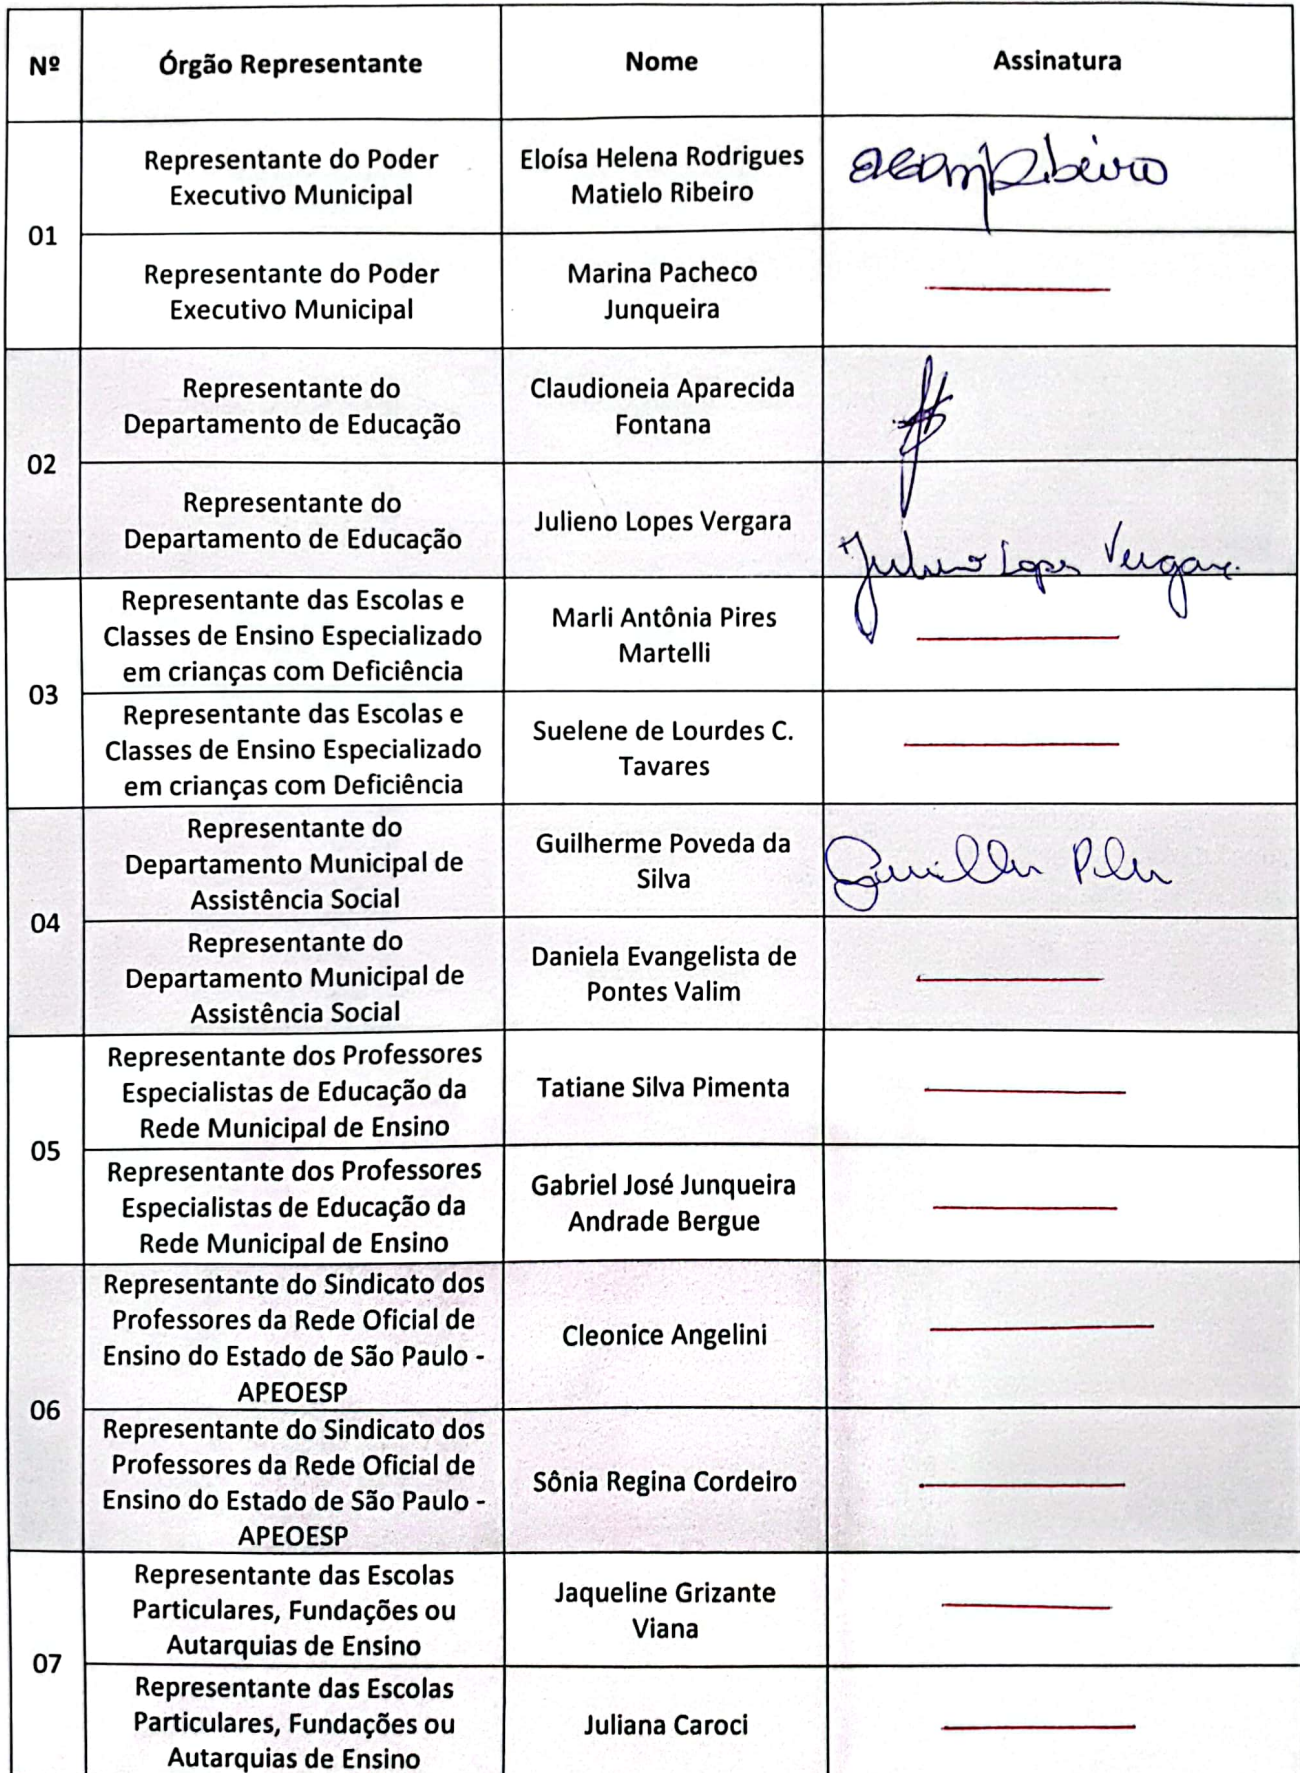 Nº Órgão Representante Nome Assinatura
01
Representante do Poder
Executivo Municipal
Eloísa Helena Rodrigues
Matielo Ribeiro
Ribeiro
Representante do Poder
Executivo Municipal
Marina Pacheco
Junqueira
02
Representante do
Departamento de Educação
Claudioneia Aparecida
Fontana
Representante do
Departamento de Educação
Julieno Lopes Vergara
Julieno Lopes Vergara
03
Representante das Escolas e
Classes de Ensino Especializado
em crianças com Deficiência
Marli Antônia Pires
Martelli
Representante das Escolas e
Classes de Ensino Especializado
em crianças com Deficiência
Suelene de Lourdes C.
Tavares
04
Representante do
Departamento Municipal de
Assistência Social
Guilherme Poveda da
Silva
Representante do
Departamento Municipal de
Assistência Social
Daniela Evangelista de
Pontes Valim
05
Representante dos Professores
Especialistas de Educação da
Rede Municipal de Ensino
Tatiane Silva Pimenta
Representante dos Professores
Especialistas de Educação da
Rede Municipal de Ensino
Gabriel José Junqueira
Andrade Bergue
06
Representante do Sindicato dos
Professores da Rede Oficial de
Ensino do Estado de São Paulo -
APEOESP
Cleonice Angelini
Representante do Sindicato dos
Professores da Rede Oficial de
Ensino do Estado de São Paulo -
APEOESP
Sônia Regina Cordeiro
07
Representante das Escolas
Particulares, Fundações ou
Autarquias de Ensino
Jaqueline Grizante
Viana
Representante das Escolas
Particulares, Fundações ou
Autarquias de Ensino
Juliana Caroci